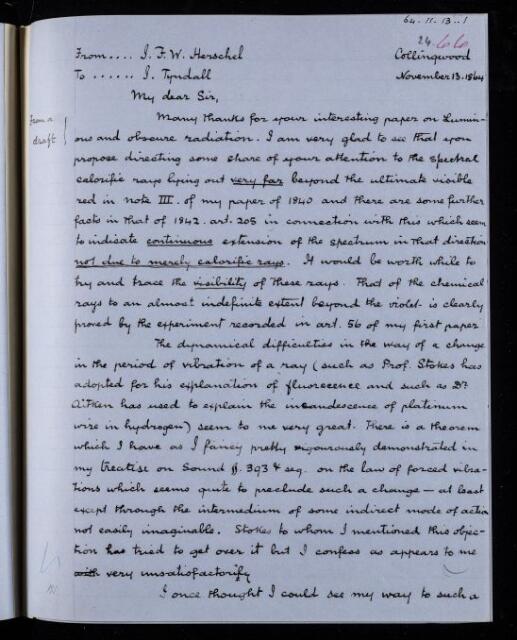 64. 11. 13 .. 1
24 66
From .... J. F. W. Herschel Collingwood
To ...... J. Tyndall November 13. 1864
My dear Sir,
From a draft
Many thanks for your interesting paper on Lumin-
ous and obscure radiation. I am very glad to see that you
propose directing some share of your attention to the spectral
calorific rays lying out very far beyond the ultimate visible
red in note III. of my paper of 1840 and there are some further
facts in that of 1842. art. 205 in connection with this which seem
to indicate continuous extension of the spectrum in that direction
not due to merely calorific rays. It would be worth while to
try and trace the visibility of these rays. That of the chemical
rays to an almost indefinite extent beyond the violet is clearly
proved by the experiment recorded in art. 56 of my first paper
The dynamical difficulties in the way of a change
in the period of vibration of a ray (such as Prof. Stokes has
adopted for his explanation of fluorecence and such as Dr
Aitken has used to explain the incandescence of platinum
wire in hydrogen) seem to me very great. There is a theorem
which I have as I fancy pretty vigourously demonstrated in
my treatise on Sound §§. 393 & seq. on the law of forced vibra-
tions which seems quite to preclude such a change — at least
except through the intermedium of some indirect mode of action
not easily imaginable. Stokes to whom I mentioned this objec-
tion has tried to get over it but I confess as appears to me
with very unsatisfactorify
I once thought I could see my way to such a